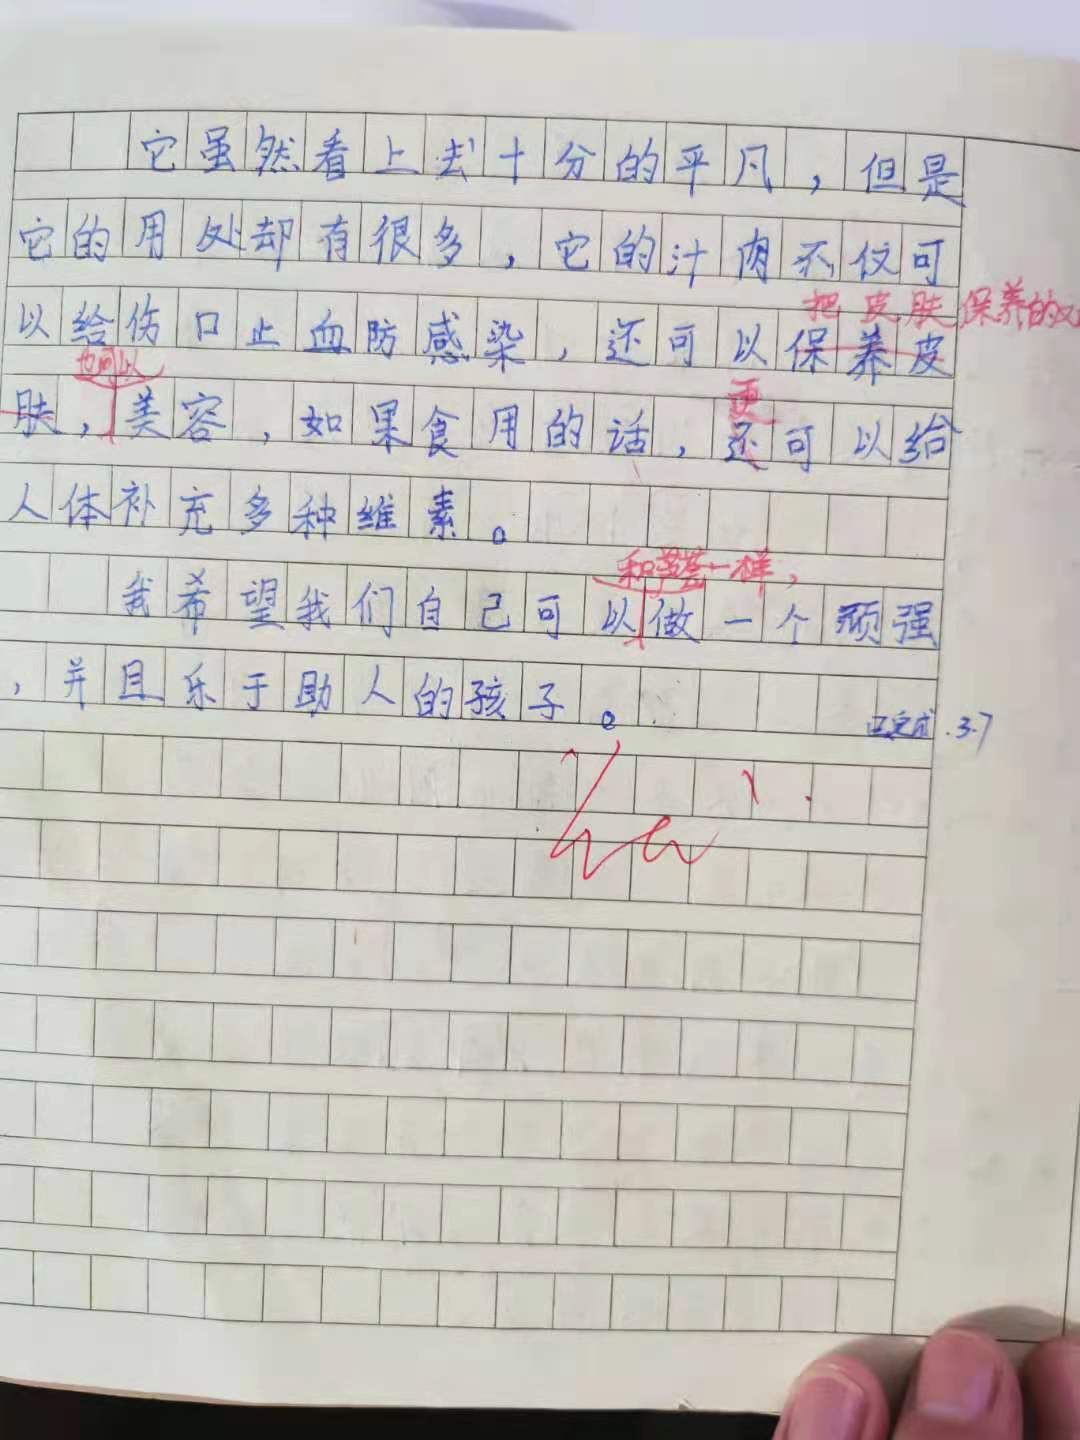 它虽然看上去十分的平凡，但是
它的用处却有很多，它的汁肉不仅可
把皮肤保养的
以给伤口止血防感染，还可以保养皮
也可以
更
肤，美容，如果食用的话，还可以给
人体补充多种维素。
和芦荟一样，
我希望我们自己可以做一个顽强
，并且乐于助人的孩子。
已完成.3.7